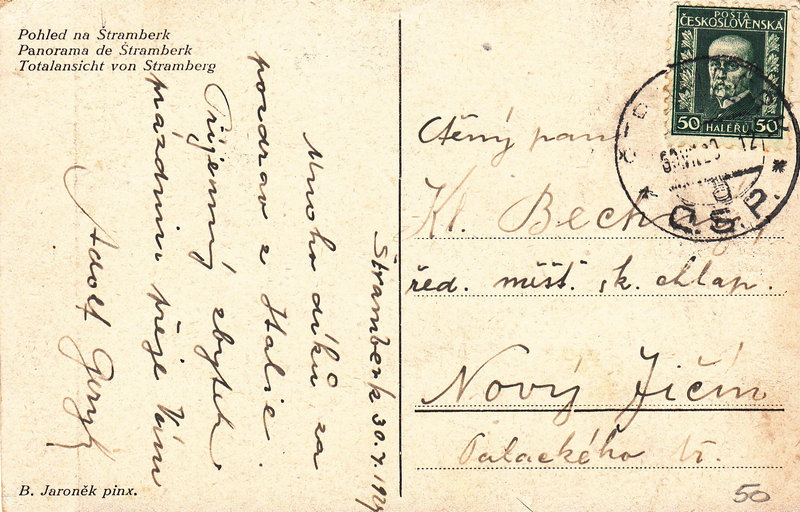 Pohled na Štramberk
Panorama de Štramberk
Totalansicht von Stramberg
Štramberk 30.
Mnoho díků za
pozdrav z Italie.
Příjemný zbytek
prázdnin přeje Vám
Adolf
B. Jaroněk pinx.
POSTA
ČESKOSLOVENSKÁ
50 HALÉŘŮ 50
Č.S.P.
Ctěný pan
Kl. Bech
řed. měšť. šk. chlap.
Nový Jičín
Palackého tř.
50